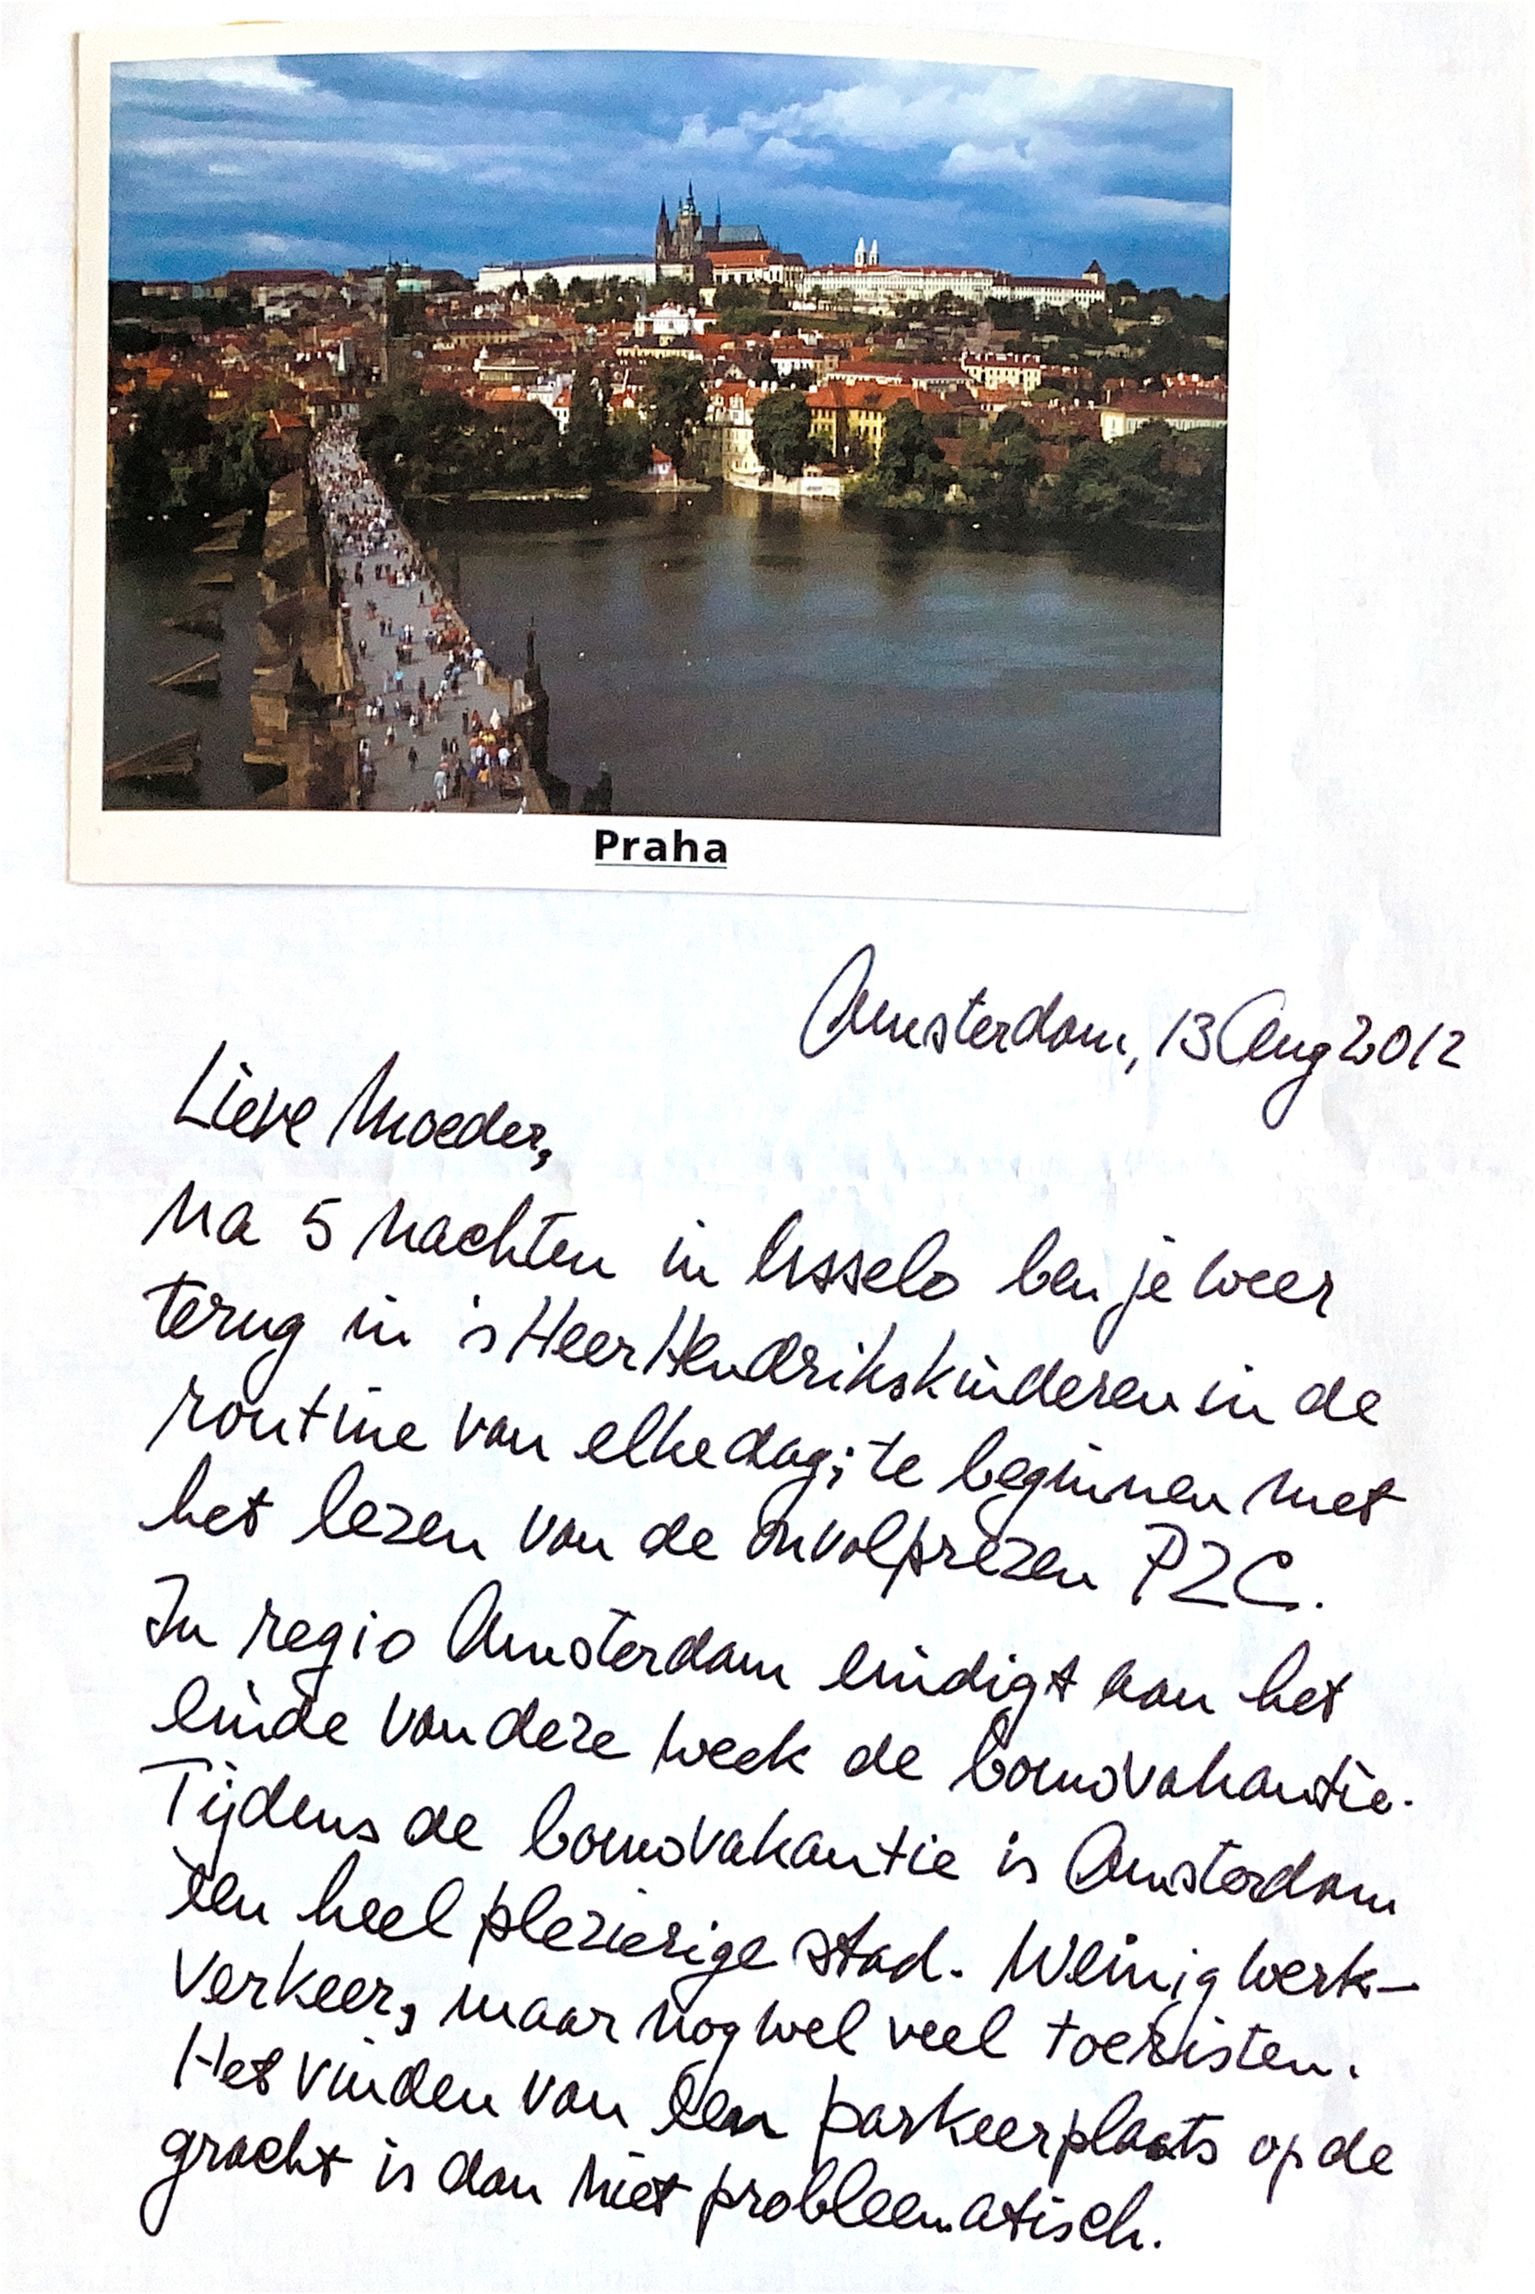 Praha
Amsterdam, 13 Aug 2012
Lieve Moeder,
Na 5 nachten in Usselo ben je weer
terug in 's Heer Hendrikskinderen in de
routine van elke dag; te beginnen met
het lezen van de onvolprezen PZC.
In regio Amsterdam eindigt aan het
einde van deze week de bouwvakantie.
Tijdens de bouwvakantie is Amsterdam
een heel plezierige stad. Weinig werk-
verkeer, maar nog wel veel toeristen.
Het vinden van een parkeerplaats op de
gracht is dan niet probleematisch.